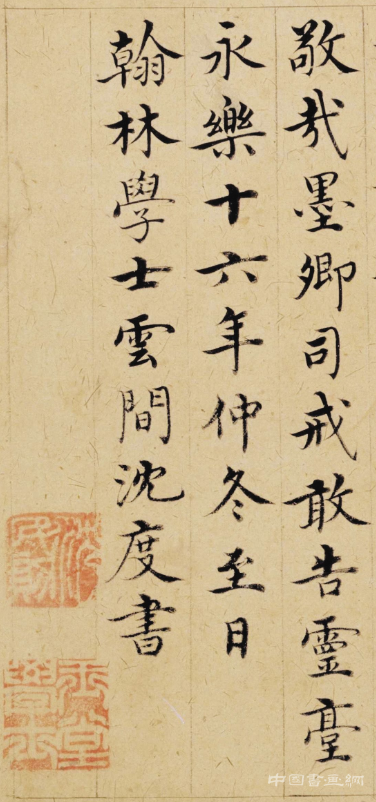 敬哉墨卿司戒敢告靈臺
永樂十六年仲冬至日
翰林學士雲間沈度書
中国书画网